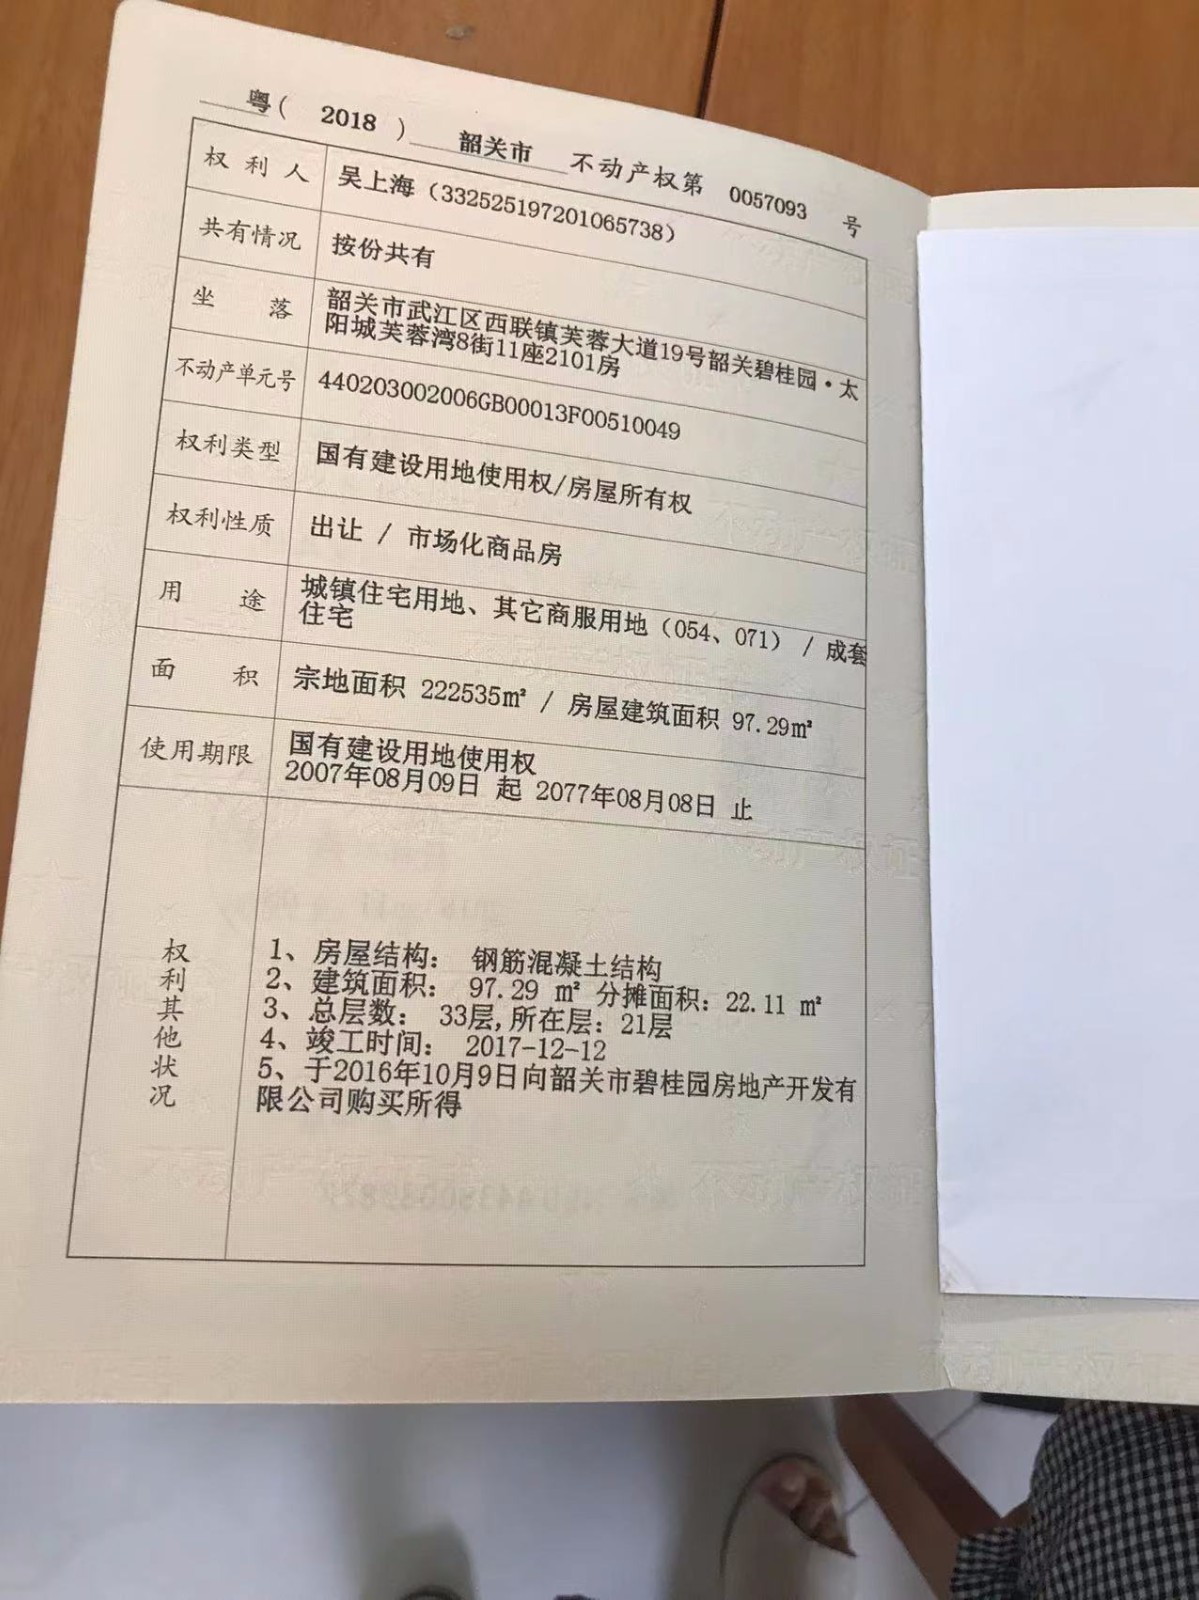 粤( 2018 ) 韶关市 不动产权第 0057093 号
权利人 吴上海（332525197201065738）
共有情况 按份共有
坐落 韶关市武江区西联镇芙蓉大道19号韶关碧桂园·太
阳城芙蓉湾8街11座2101房
不动产单元号 440203002006GB00013F00510049
权利类型 国有建设用地使用权/房屋所有权
权利性质 出让 / 市场化商品房
用途 城镇住宅用地、其它商服用地（054、071） / 成套
住宅
面积 宗地面积 222535㎡ / 房屋建筑面积 97.29㎡
使用期限 国有建设用地使用权
2007年08月09日 起 2077年08月08日 止
权利其他状况
1、房屋结构： 钢筋混凝土结构
2、建筑面积： 97.29 ㎡ 分摊面积：22.11 ㎡
3、总层数： 33层,所在层：21层
4、竣工时间： 2017-12-12
5、于2016年10月9日向韶关市碧桂园房地产开发有
限公司购买所得